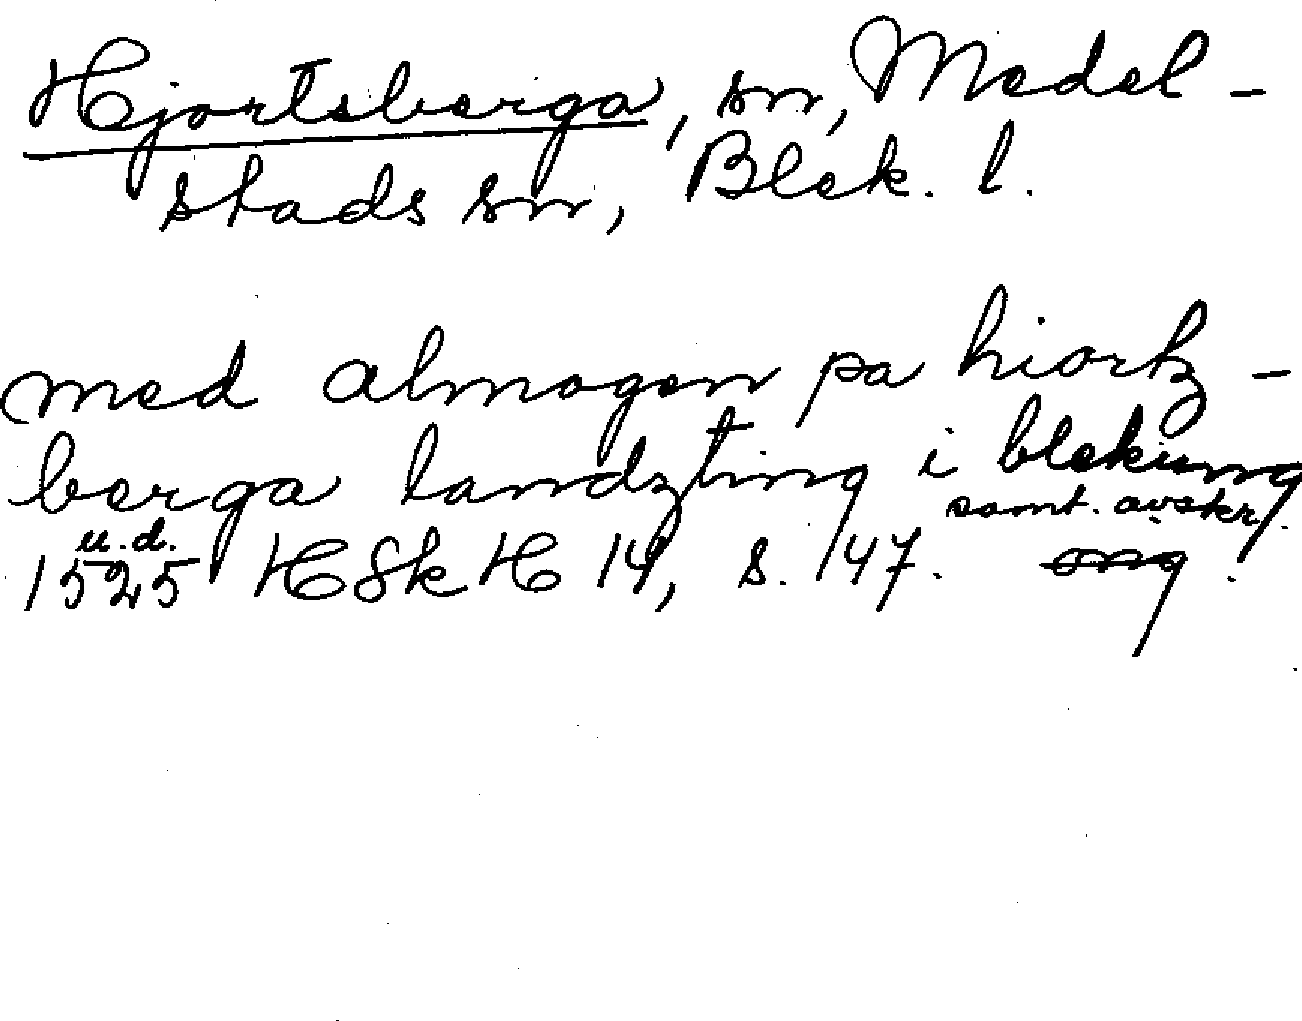 Hjortsberga, sn, Medel-
stads sn, Blek. l.
med almogen pa hiortz-
berga landzting i blekung
samt. avskr.
u.d.
1525 HSkH 14, s. 147. <s>org</s>.